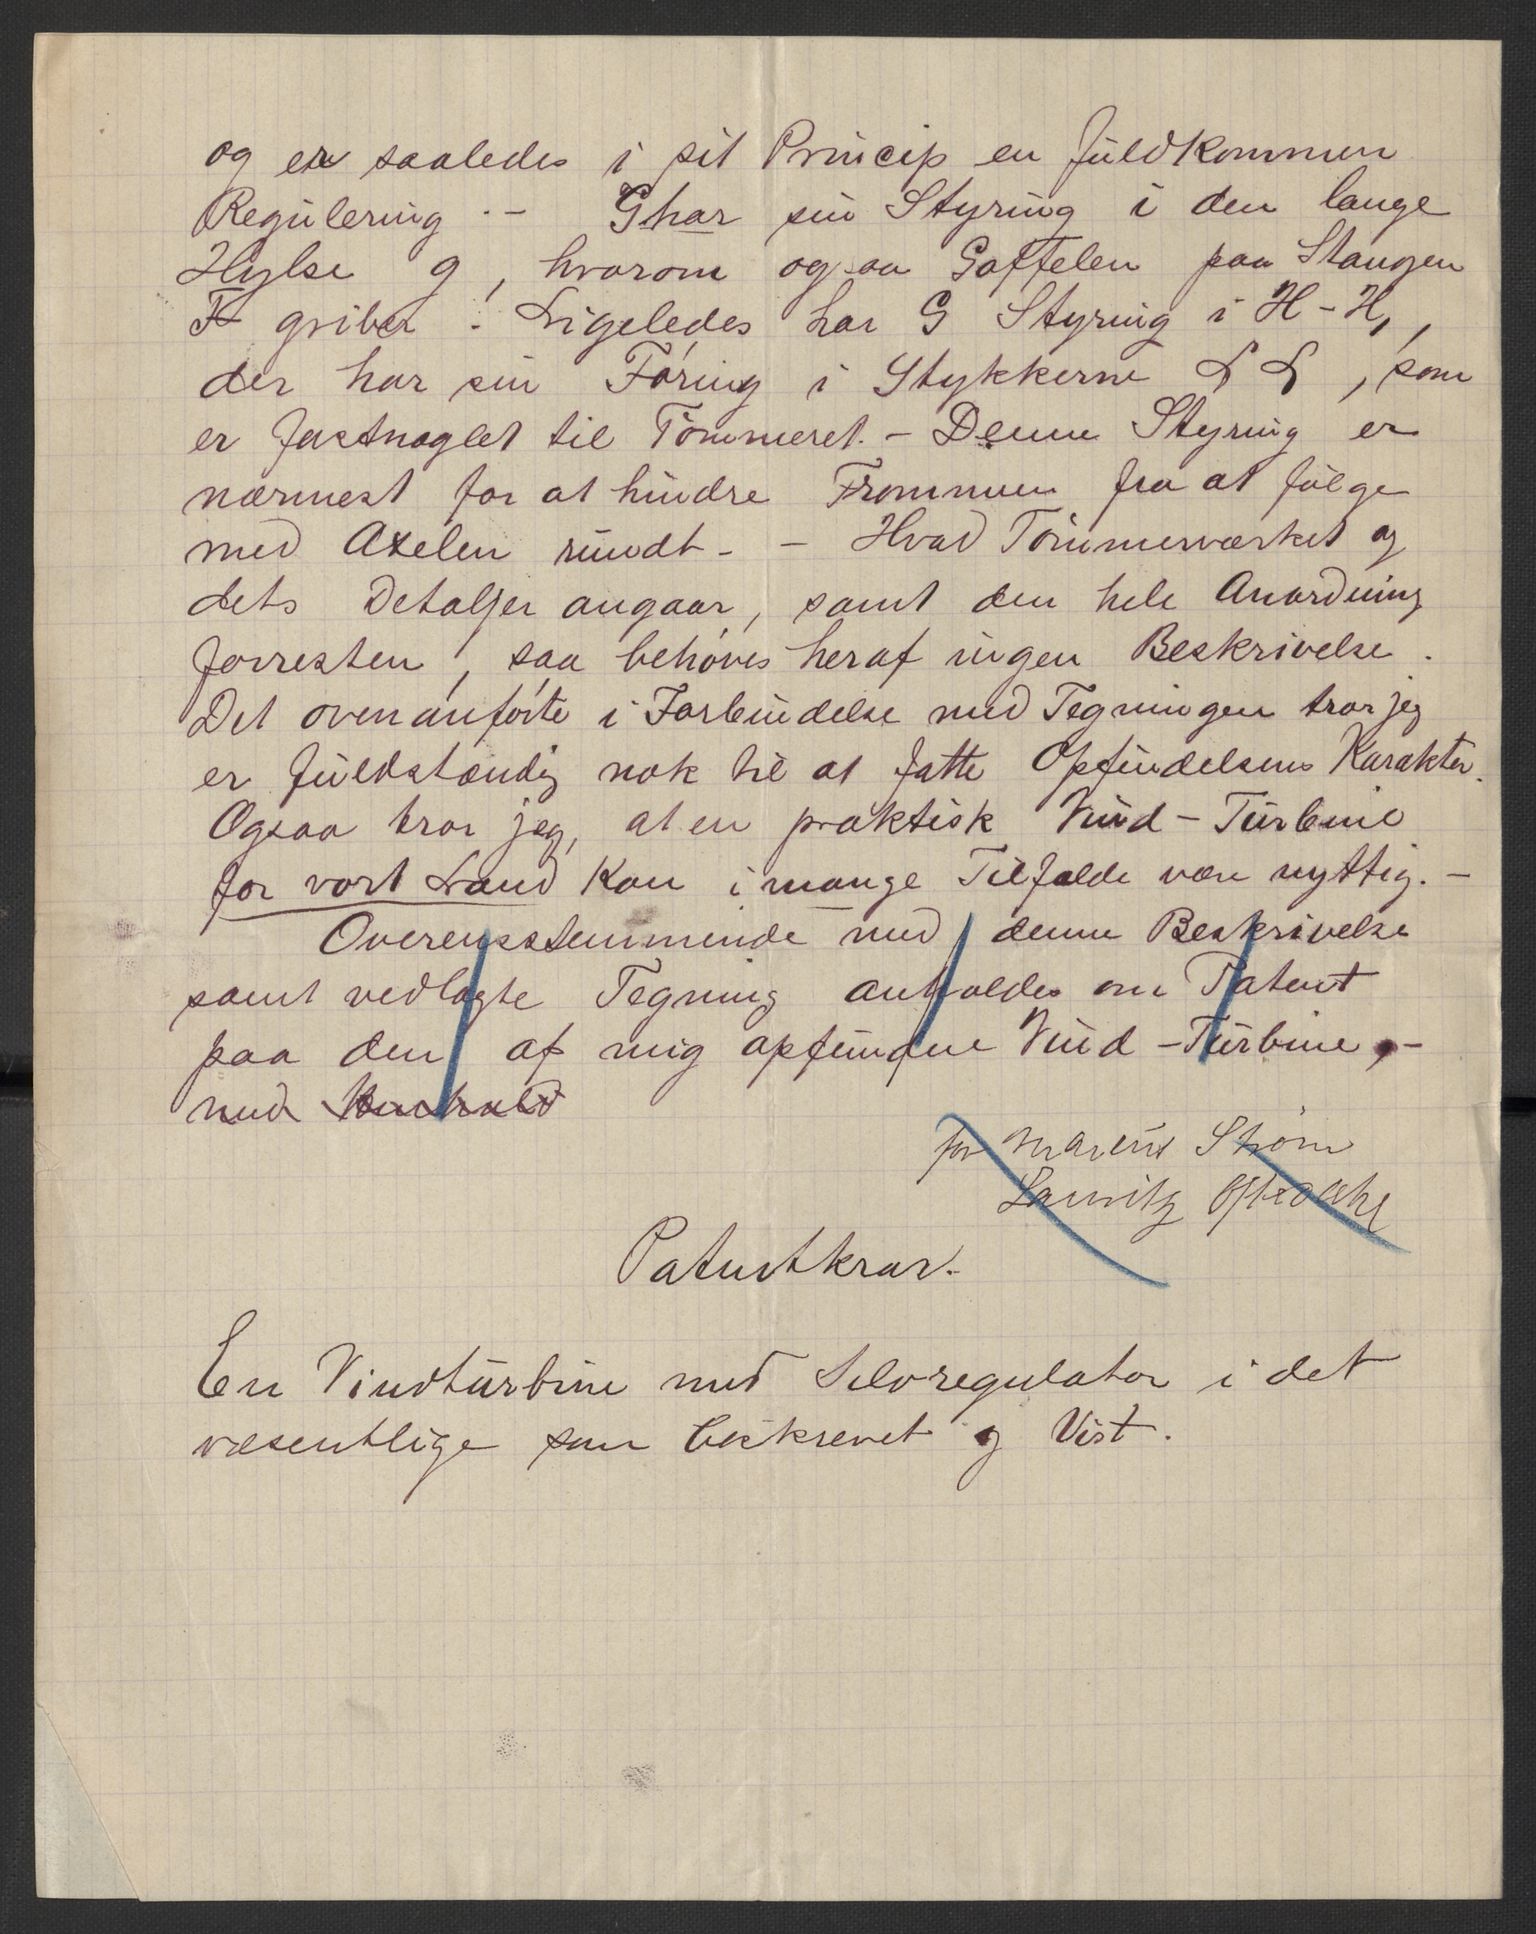 og er saaledes i sit Princip en fuldkommen
Regulering. – G har sin Styring i den lange
Hylse g, hvorom ogsaa Gaffelen paa Stangen
F griber. Ligeledes har G Styring i H-H,,
der har sin Føring i Stykkerne L L, som
er fastnaglet til Tømmeret. – Denne Styring er
nærmest for at hindre Trommen fra at følge
med Axelen rundt – – Hvad Tømmerværket og
dets Detaljer angaar, samt den hele Anordning
forresten, saa behøves heraf ingen Beskrivelse.
Det ovenanførte i Forbindelse med Tegningen tror jeg
er fuldstændig nok til at fatte Opfindelsens Karakter.
Ogsaa tror jeg, at en praktisk Vind-Turbine
for vort Land kan i mange Tilfælde være nyttig. –
Overensstemmende med denne Beskrivelse
samt vedlagte Tegning anholdes om Patent
paa den af mig opfundne Vind-Turbine, –
med
for Marius Strøm
Lauritz
Patentkrav.
En Vindturbine med Selvregulator i det
væsentlige som beskrevet og Vist.